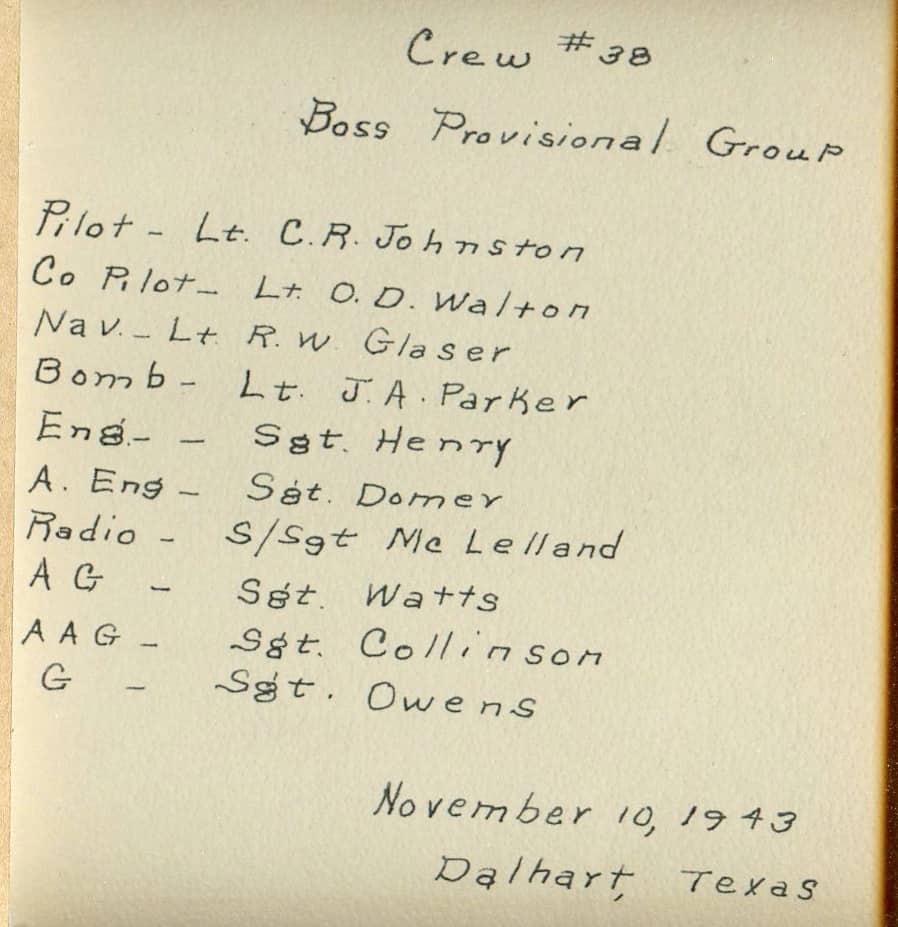 Crew #38
Boss Provisional Group
Pilot - Lt. C.R. Johnston
Co Pilot - Lt. O.D. Walton
Nav. - Lt R.W. Glaser
Bomb - Lt. J.A. Parker
Eng. - - Sgt. Henry
A. Eng - Sgt. Domer
Radio - S/Sgt Mc Lelland
A G - Sgt. Watts
A A G - Sgt. Collinson
G - Sgt. Owens
November 10, 1943
Dalhart, Texas